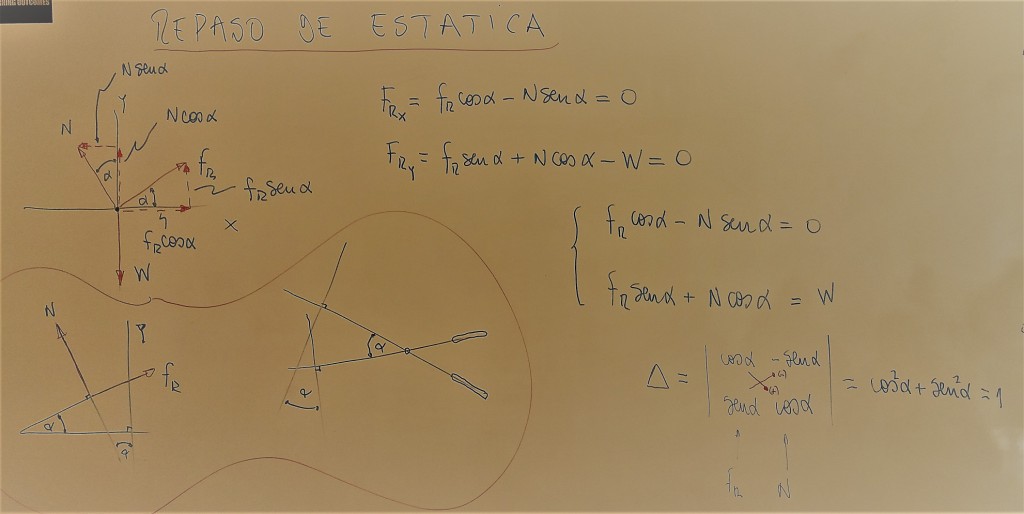 REPASO DE ESTATICA
N senα
Y
N cosα
N
α
f_R
α
f_R senα
X
f_R cosα
W
F_Rx = f_R cosα - N senα = 0
F_Ry = f_R senα + N cosα - W = 0
f_R cosα - N senα = 0
f_R senα + N cosα = W
N
Y
f_R
α
α
α
α
Δ = | cosα - senα | = cos²α + sen²α = 1
(-)
(+)
senα cosα
f_R N